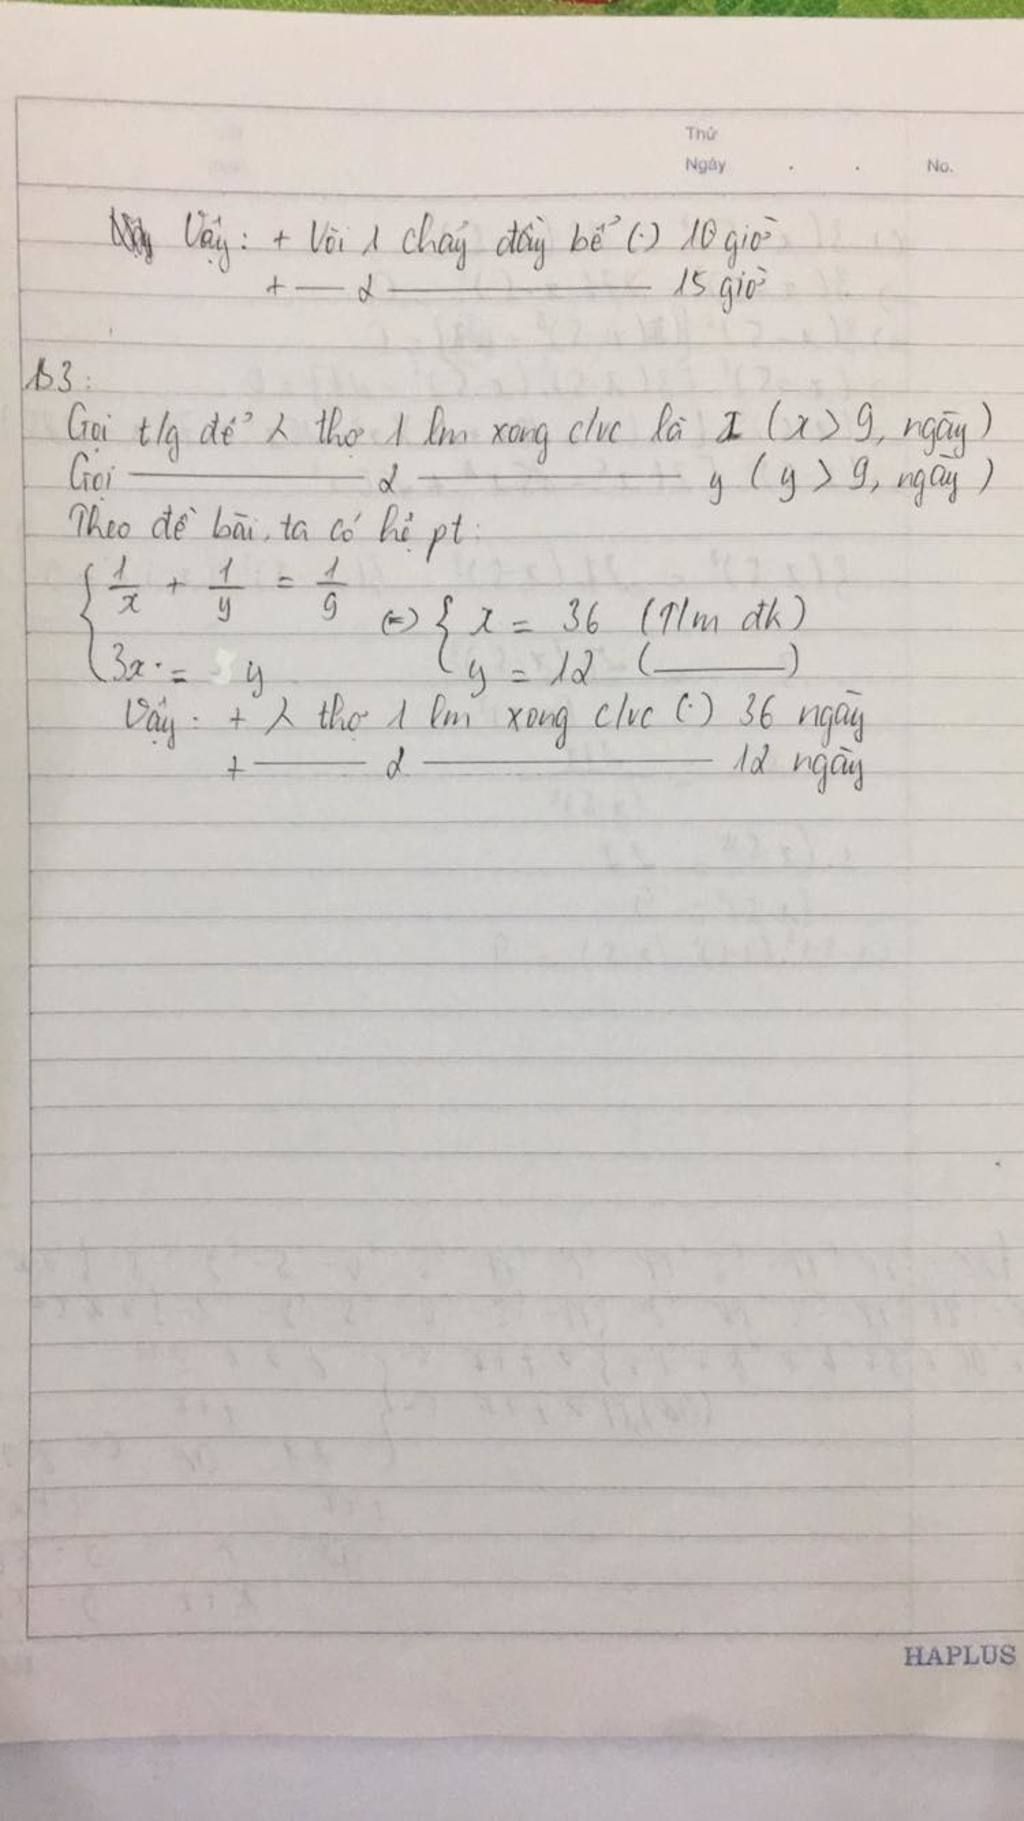 Thứ
Ngày . . No.
Vậy: + Vòi 1 chảy đầy bể (.) 10 giờ
+ — 2 ——— 15 giờ
B3:
Gọi t/g để λ thợ 1 lm xong c/vc là x (x > 9, ngày)
Gọi ——— 2 ——— y (y > 9, ngày)
Theo đề bài, ta có hệ pt:
{ 1/x + 1/y = 1/9
(=) { x = 36 (T/m đk)
3x = y
y = 12 (———)
Vậy: + λ thợ 1 lm xong c/vc (.) 36 ngày
+ ——— 2 ——— 12 ngày
HAPLUS